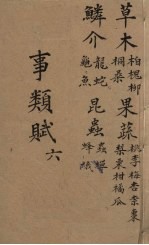 草木 柏槐柳
桐桑
果蔬 桃李梅杏柰棗
梨栗柑橘瓜
鱗介 龍蛇
龜魚
昆蟲 蟲蟬
蜂蟻
事類賦 六